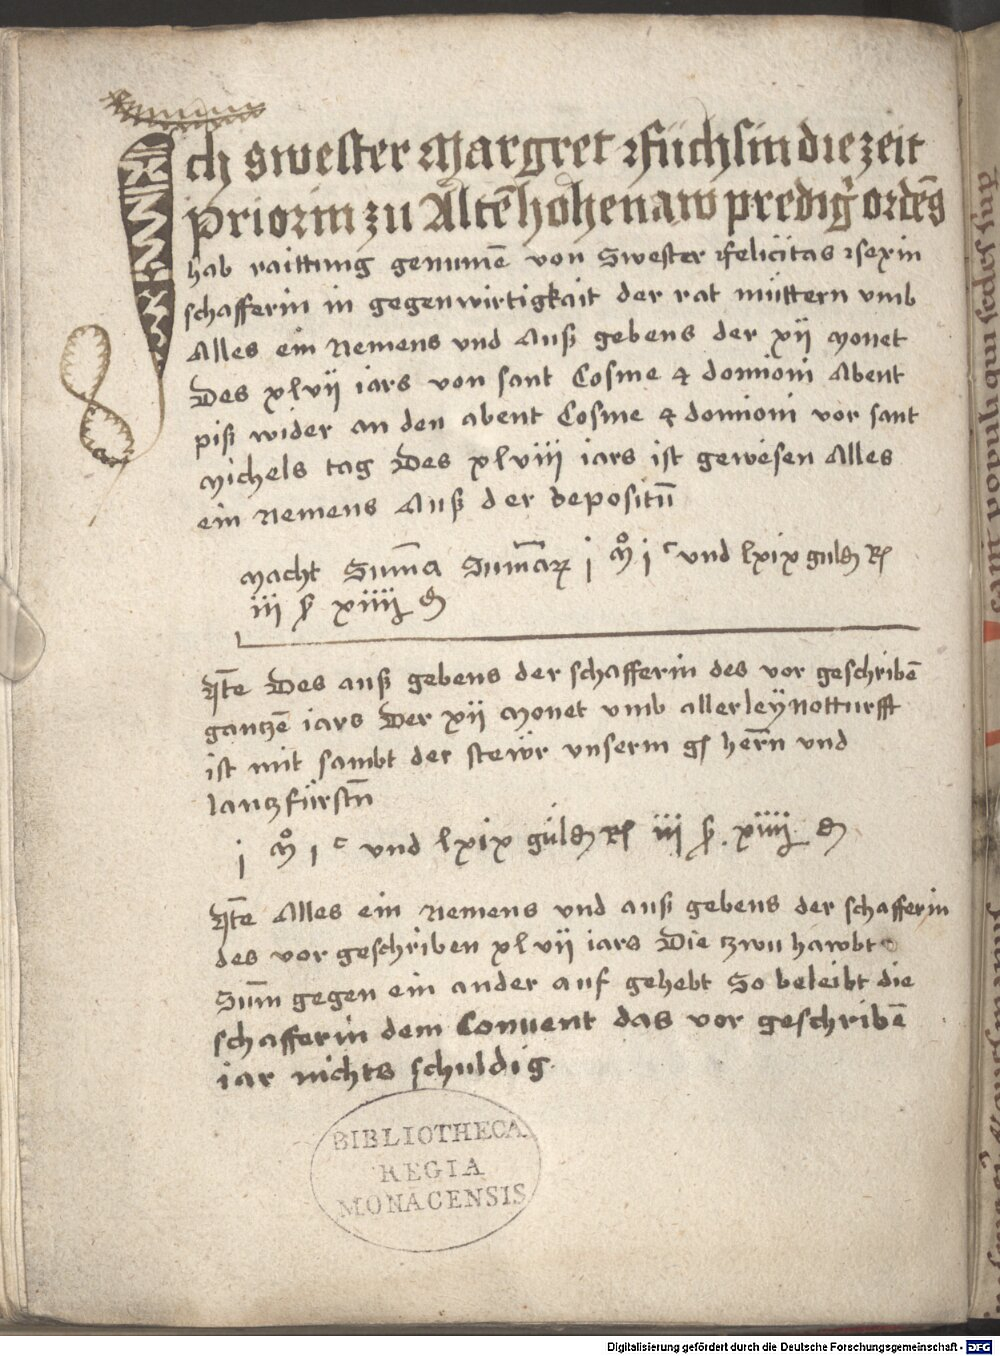 Ich swester Margret Füchsin die zeit
Priorin zu Altēhohenaw prediḡ ordēs
hab raittung genumē von Swester Felicitas Sexin
schafferin in gegenwirtigkait der rat müttern vmb
Alles ein Nemens vnd Auß gebens der xij Monet
Des xlvij iars von sant Cosme & domioni Abent
piß wider an den abent Cosme & domioni vor sant
Michels tag Des xlviij iars ist gewesen Alles
ein Nemens Auß der depositn̄
Macht Sum̄a Sum̄aꝝ j Mͦ jᶜ vnd lxix guld R
iij ß xiiij d
Ite Des auß gebens der schafferin des vor geschribē
gantzē iars Der xij Monet vmb allerley Notturfft
ist mit sambt der stewr vnserm g herrn̄ vnd
lantzfürstn̄
j Mͦ jᶜ vnd lxix güld R iij ß. xiiij d
Ite Alles ein Nemens vnd auß gebens der schafferin
des vor geschriben xlvij iars Die tzwu hawbt
Sum̄ gegen ein ander auf gehebt So beleibt die
schafferin dem Conuent das vor geschribē
iar nichts schuldig.
BIBLIOTHECA
REGIA
MONACENSIS
Digitalisierung gefördert durch die Deutsche Forschungsgemeinschaft - DFG